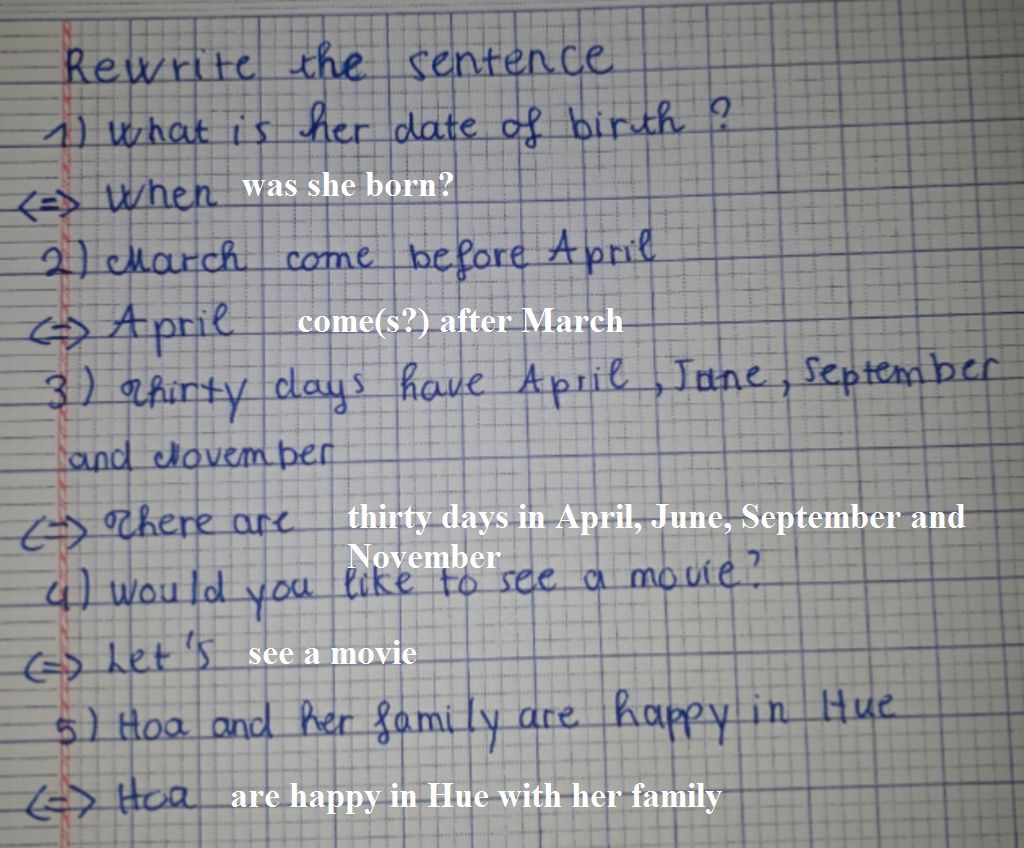 Rewrite the sentence
1) What is her date of birth ?
<=> When was she born?
2) March come before April
<=> April come(s?) after March
3) Thirty days have April , Jane , September
and November
<=> There are thirty days in April, June, September and
November
4) Would you like to see a movie?
<=> Let's see a movie
5) Hoa and her family are happy in Hue
<=> Hoa are happy in Hue with her family